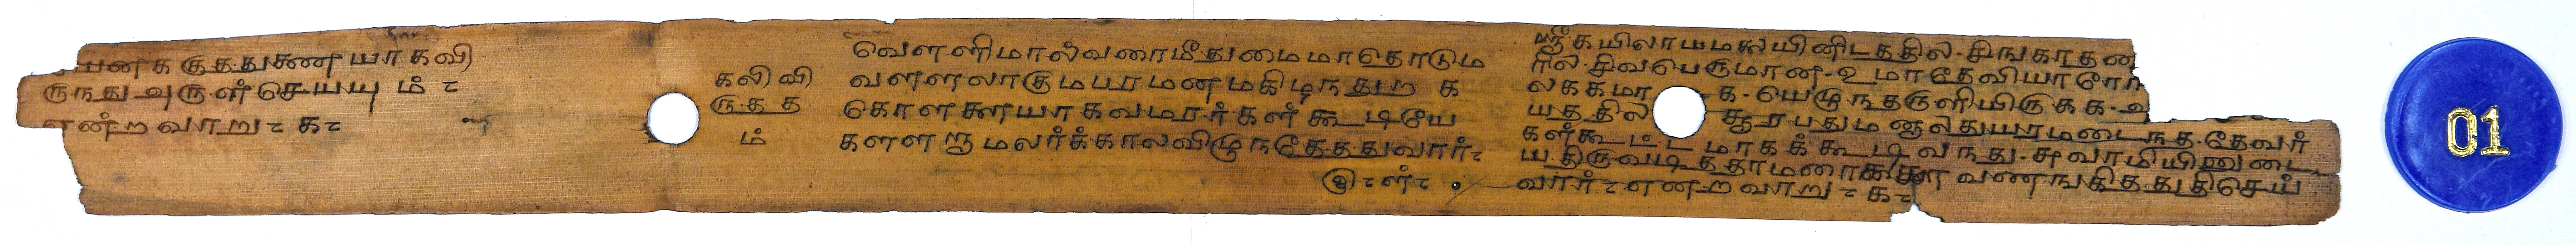 பனகருதததுணையாகவி
ருநதுஅருள்செயயும்
என்றவாறு க
கலிவி
ருதத
ம்
வெளளிமால்வரைமீதுமைமாதொடும
வளளலாகுமபரமனமகிழநதுற
கொளகையாகவமரர்கள்கூடியே
களளறாமலர்க்காலவிழுநதேததுவார்
ஸ்ரீகயிலாயமலையினிடததில-சிஙகாதன
ரில-சிவபெருமான-உமாதேவியாரோ
லககமா க-யெழுநதருளியிருகக-அ
யததில சூரபதுமனாலதுயரமடைநத-தேவர்
கள்கூட்டமாகக்கூடிவநது-சுவாமியினுடை
யதிருவடித்தாமரைகளை வணஙகிததுதிசெய்
வார் என்றவாறு க
01